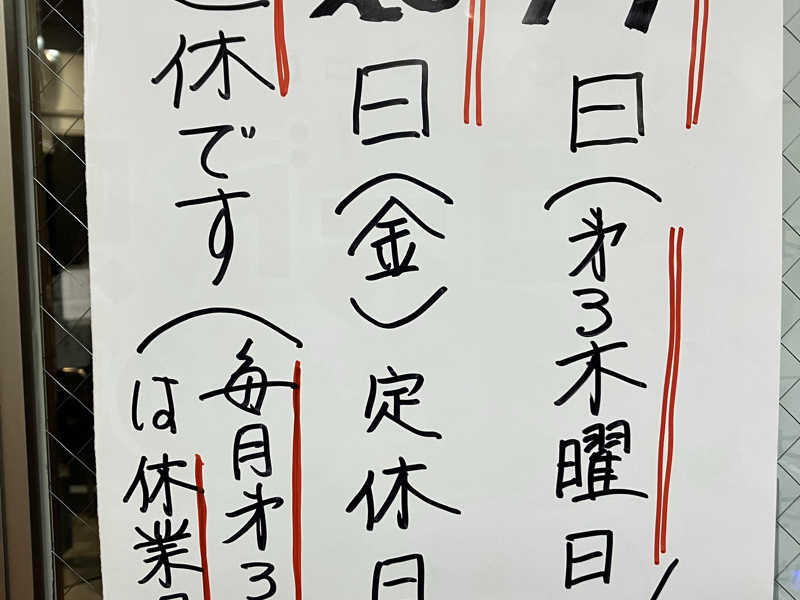 日(第3木曜日
日(金)定休日
休です(毎月第3
は休業